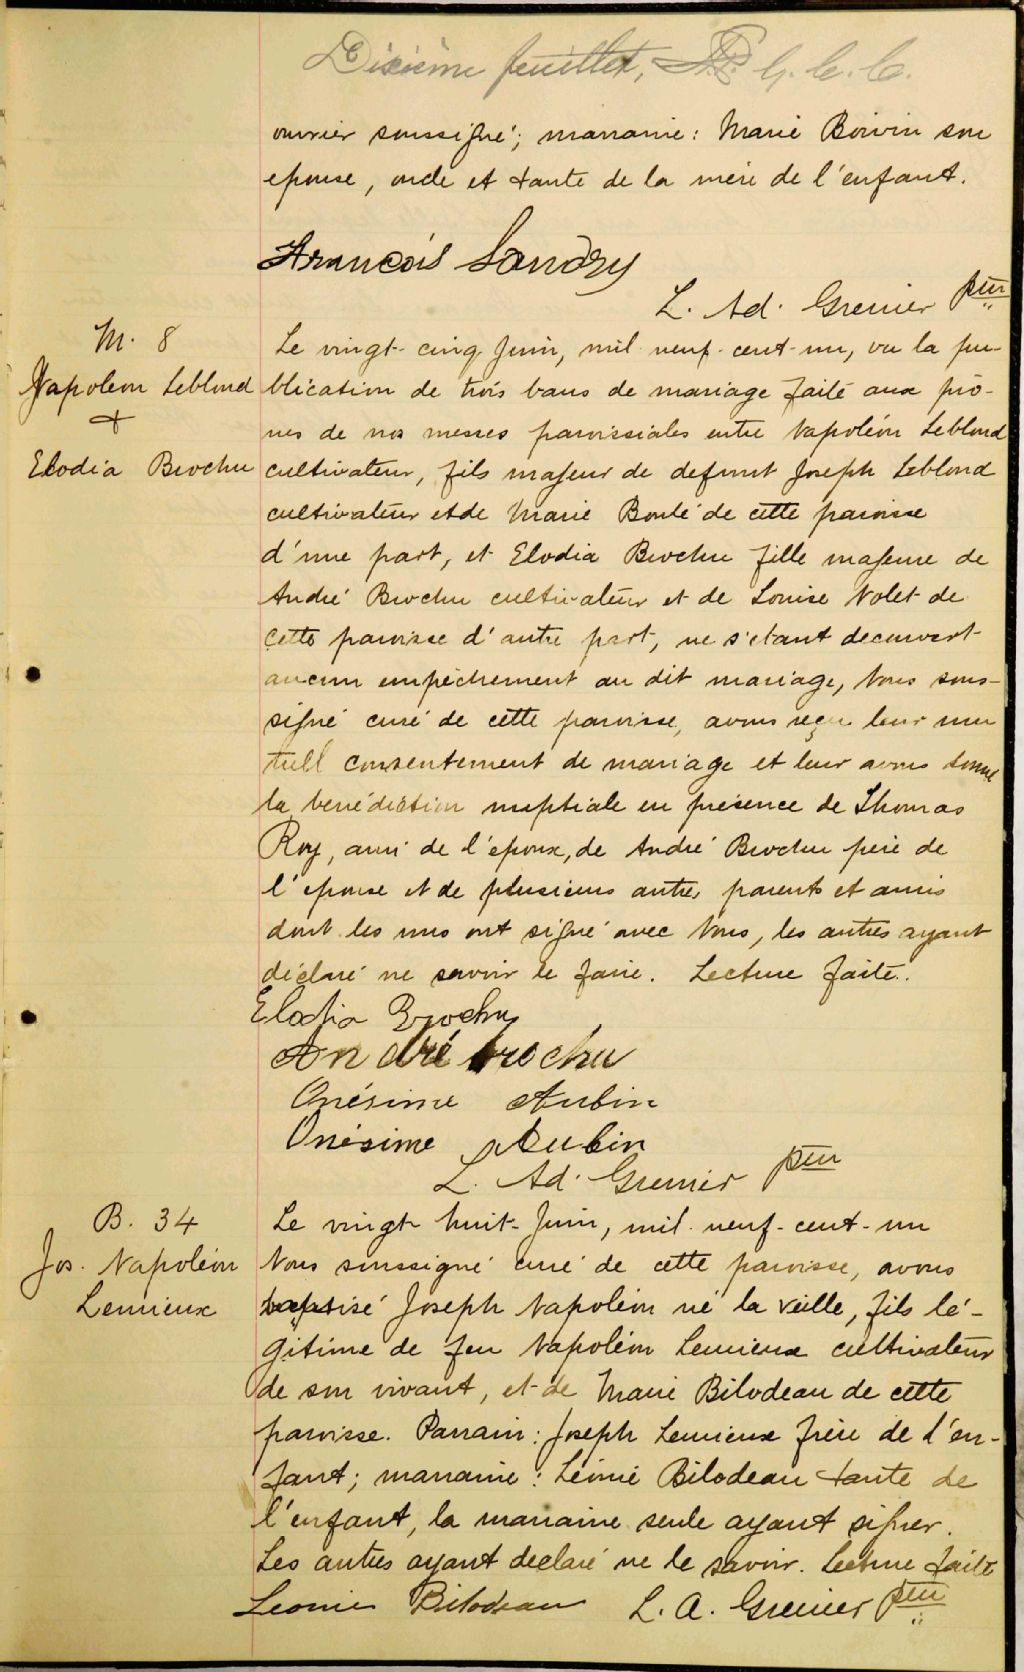 Dixième feuillet, G. C. C.
ouvrier soussigné; marraine: Marie Boivin son
epouse, oncle et tante de la mère de l'enfant.
Francois Landry
L. Ad. Grenier ptre
M. 8
Napoléon Leblond
+
Elodia Brochu
Le vingt-cinq Juin, mil-neuf-cent-un, vu la pu-
blication de trois bans de mariage faite aux prô-
nes de nos messes paroissiales entre Napoléon Leblond
cultivateur, fils majeur de defunt Joseph Leblond
cultivateur et de Marie Boulé de cette paroisse
d'une part, et Elodia Brochu fille majeure de
André Brochu cultivateur et de Louise Nolet de
cette paroisse d'autre part, ne s'étant decouvert
aucun empêchement au dit mariage, Nous sous-
signé curé de cette paroisse, avons reçu leur mu
tuel consentement de mariage et leur avons donné
la bénédiction nuptiale en présence de Thomas
Roy, ami de l'époux, de André Brochu père de
l'epouse et de plusieurs autres parents et amis
dont les uns ont signé avec Nous, les autres ayant
déclaré ne savoir le faire. Lecture faite.
Elodia Brochu
André brochu
Onésime Aubin
Onésime Aubin
L. Ad. Grenier ptre
B. 34
Jos. Napoléon
Lemieux
Le vingt-huit-Juin, mil-neuf-cent-un
Nous soussigné curé de cette paroisse, avons
baptisé Joseph Napoléon né la veille, fils lé-
gitime de feu Napoléon Lemieux cultivateur
de son vivant, et de Marie Bilodeau de cette
paroisse. Parrain: Joseph Lemieux frère de l'en-
fant; marraine: Léonie Bilodeau tante de
l'enfant, la marraine seule ayant signer.
Les autres ayant declaré ne le savoir. Lecture faite
Leonie Bilodeau L. A. Grenier ptre